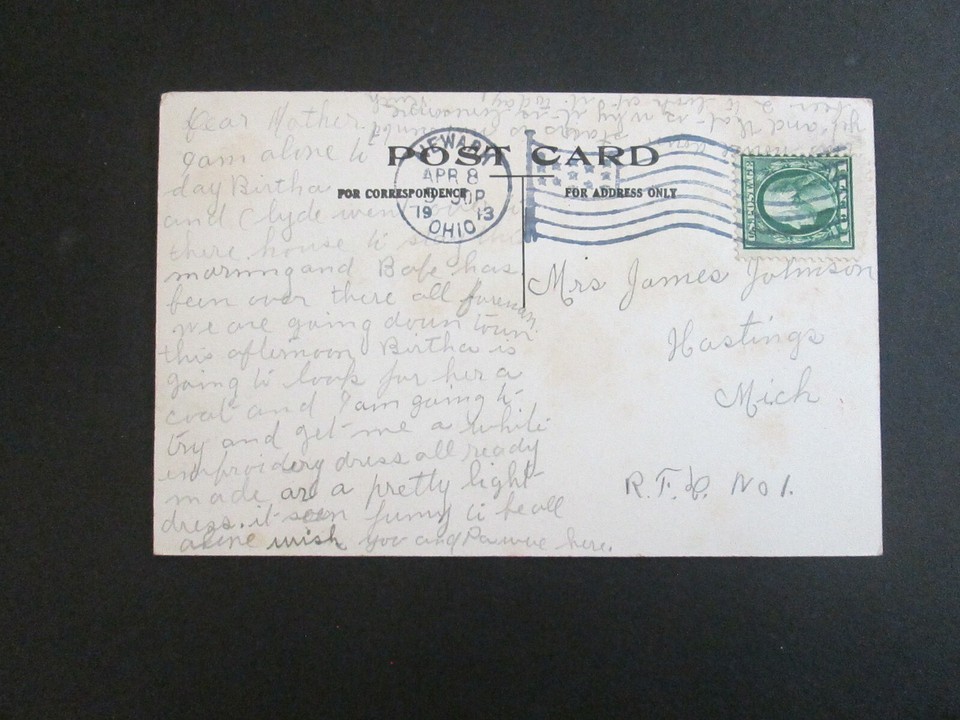 POST CARD
FOR CORRESPONDENCE
FOR ADDRESS ONLY
NEWARK
APR 8
30P
1913
OHIO
U.S. POSTAGE
1 CENT 1
Dear Mother
I am alone to
day Birtha
and Clyde went over
there house to stay this
morning and Bobe has
been over there all forenoon.
we are going down town
this afternoon Birtha is
going to look for her a
coat and I am going to
try and get me a white
embroidery dress all ready
made or a pretty light
dress. it seem funny to be all
alone wish you and Pa were here.
yet and that is why it is
been to up it today
Mrs James Johnson
Hastings
Mich.
R.F.D. No 1.